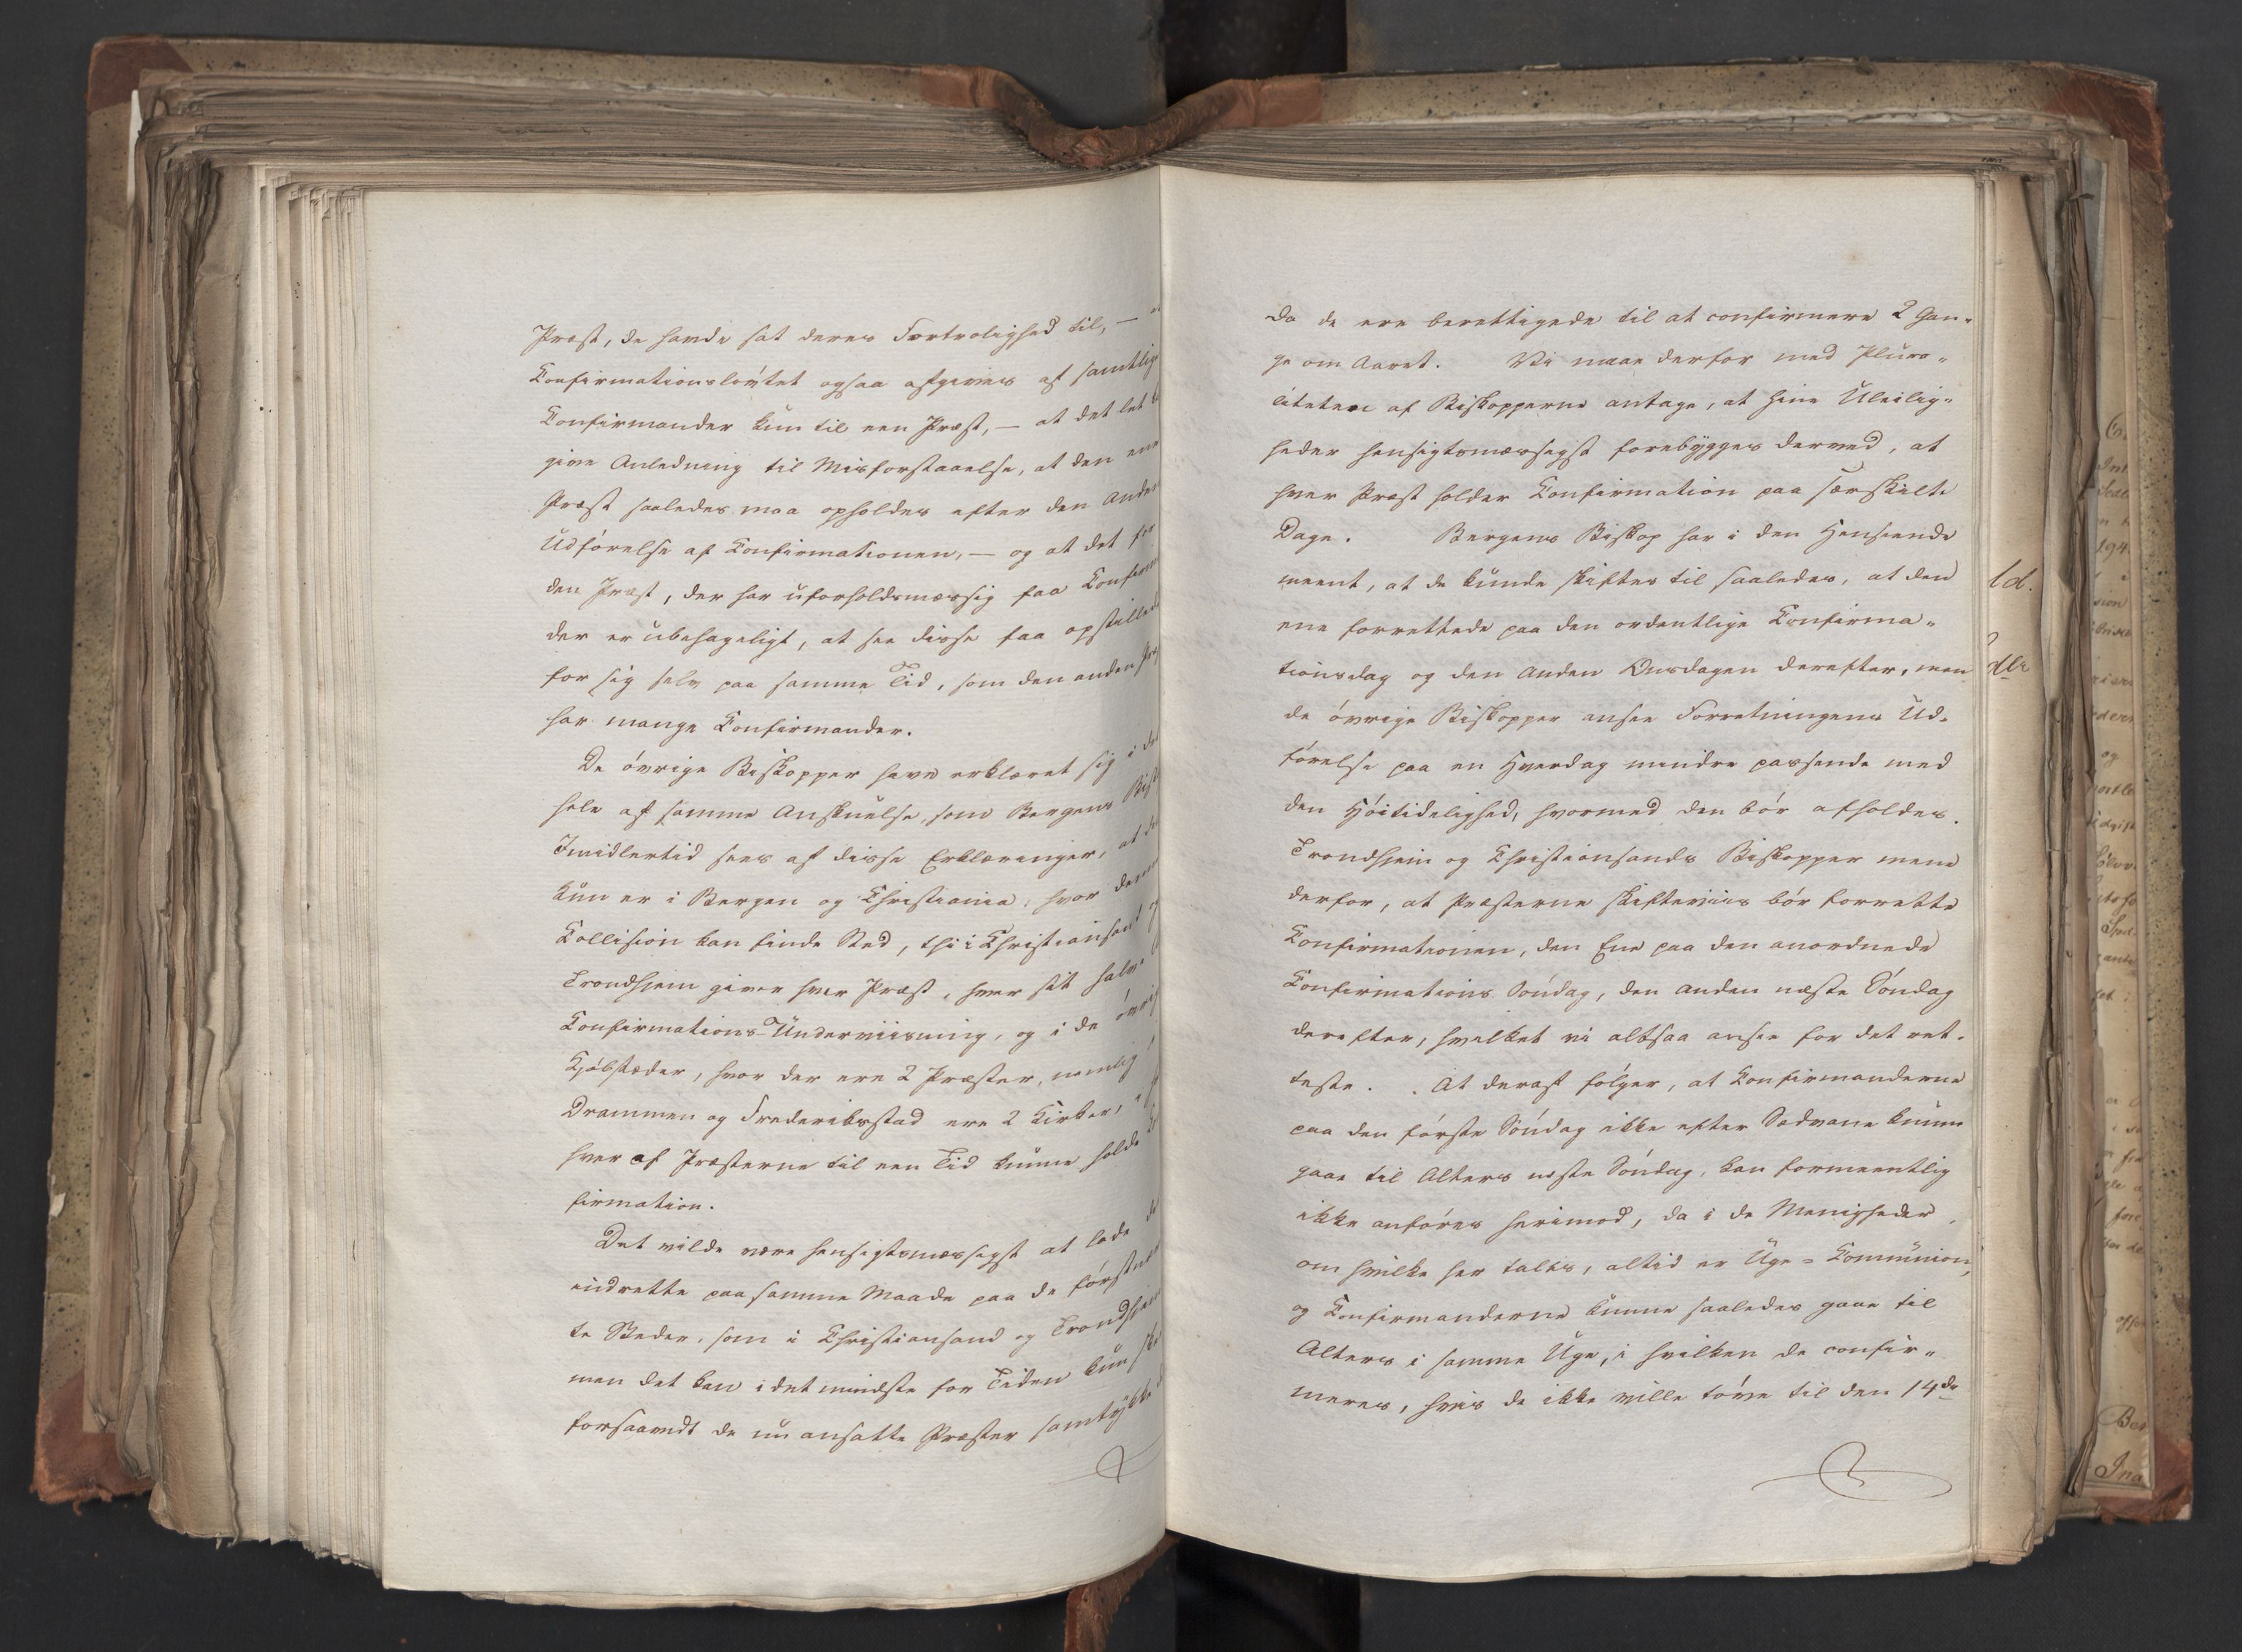 Præst, de havde sat deres Fortrolighed til, —
Confirmationsløvtet ogsaa afgives af samtlige
Confirmander kun til een Præst, — at det let
give Anledning til Misforstaaelse, at den ene
Præst saaledes maa opholdes efter den Anden
Udførelse af Confirmationen, — og at det for
den Præst, der har uforholdsmæssig faa Confirm
der er ubehageligt, at see disse faa opstillede
for sig selv paa samme Tid, som den anden Præ
har mange Confirmander.
De øvrige Biskopper have erklæret sig i det
hele af samme Anskuelse, som Bergens Bisk
Imidlertid sees af disse Erklæringer, at det
kun er i Bergen og Christiania, hvor denne
Collision kan finde Sted, thi i Christiansand og
Trondhjem giver hver Præst, hver sit halve
Confirmations-Underviisning, og i de øvrig
Kjøbstæder, hvor der ere 2 Præster, nemlig
Drammen og Frederiksstad ere 2 Kirker, i
hver af Præsterne til een Tid kunne holde
firmation.
Det vilde være hensigtsmæssigst at lade
indrette paa samme Maade paa de førstnævn
te Steder, som i Christiansand og Trondhjem
men det kan i det mindste for Tiden kun skee
forsaavidt de nu ansatte Præster samtykke
da de ere berettigede til at confirmere 2 Gan-
ge om Aaret. Vi maae derfor med Plura-
liteten af Biskopperne antage, at hine Uleilig-
heder hensigtsmæssigst forebygges derved, at
hver Præst holder Confirmation paa særskilte
Dage. Bergens Biskop har i den Henseende
meent, at de kunde skiftes til saaledes, at den
ene forrettede paa den ordentlige Confirma-
tionsdag og den Anden Onsdagen derefter, men
de øvrige Biskopper ansee Forretningens Ud-
førelse paa en Hverdag mindre passende med
den Høitidelighed, hvormed den bør afholdes.
Trondhjem og Christiansands Biskopper mene
derfor, at Præsterne skifteviis bør forrette
Confirmationen, den Ene paa den anordnede
Confirmations Søndag, den anden næste Søndag
derefter, hvilket vi altsaa ansee for det ret-
teste. At deraf følger, at Confirmanderne
paa den første Søndag ikke efter Sædvane kunne
gaae til Alters næste Søndag, kan formeentlig
ikke anføres herimod, da i de Menigheder,
om hvilke her tales, altid er Uge-Communion,
og Confirmanderne kunne saaledes gaae til
Alters i samme Uge, i hvilken de confir-
meres, hvis de ikke ville tøve til den 14de